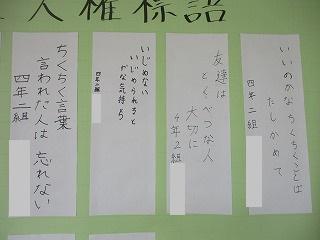 人権標語
いいのかな ちくちくことば
たしかめて
四年二組
友達は
とくべつな人
大切に
4年2組
いじめない
いじめられると
な気持ち
四年二組
ちくちく言葉
言われた人は 忘れない
四年二組